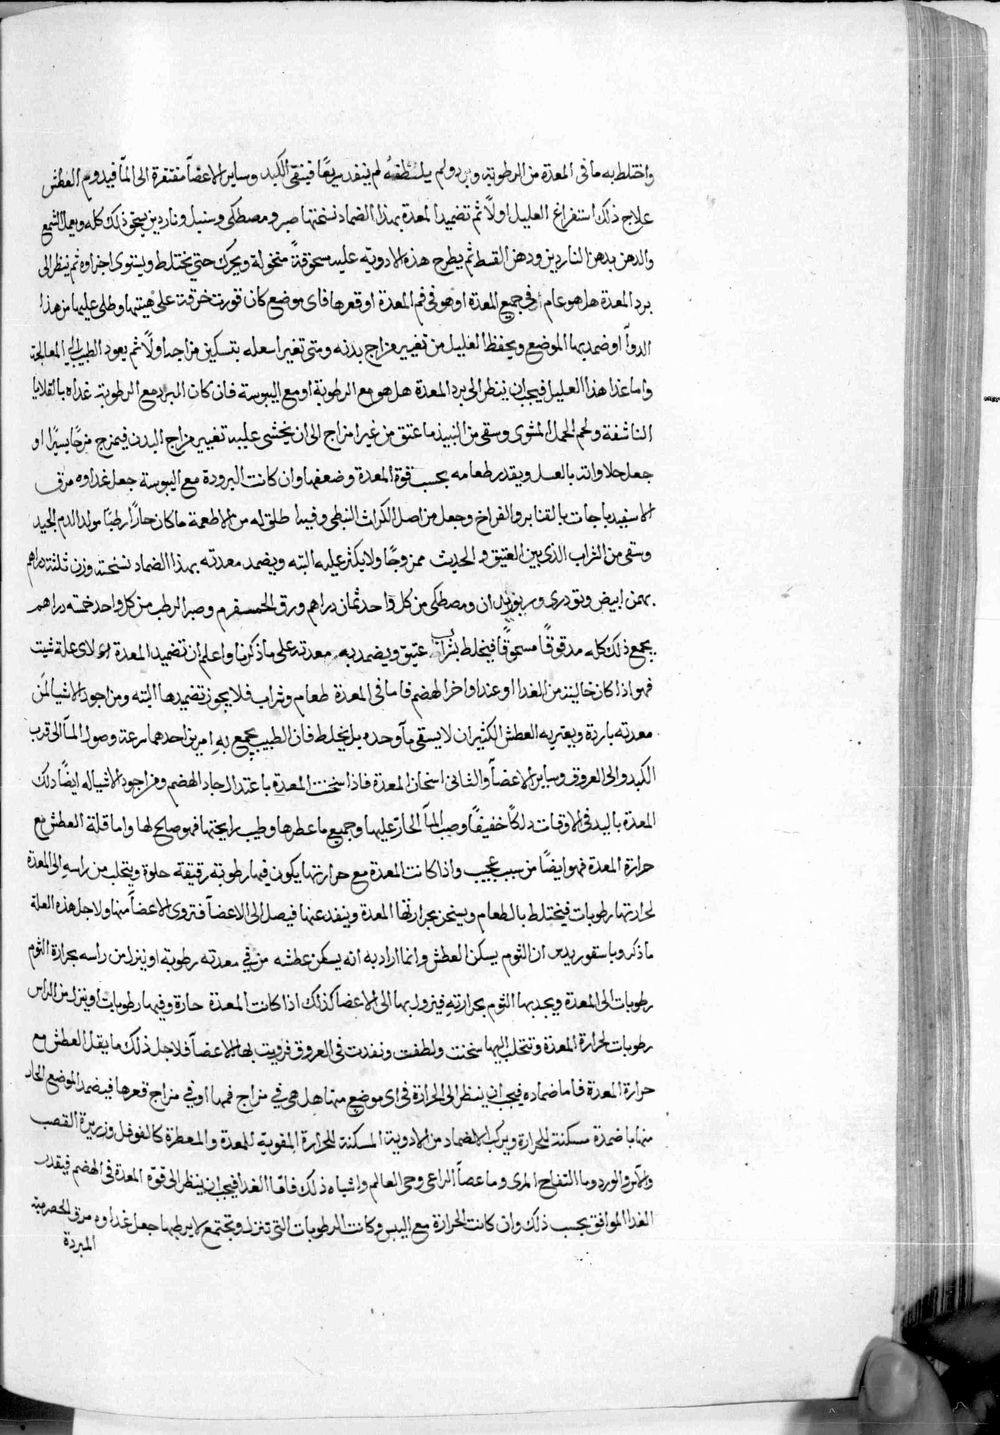 واختلط به ما فى المعدة من الرطوبة وبرد ولم يلطفه لم ينفد سريعًا فبقى الكبد وساير الاعضآ مفتقرة الى المآ فيدوم العطش
علاج ذلك استفراغ العليل اولًا ثم تضميد المعدة بهذا الضماد نسختها صبر ومصطكى وسنبل وناردين يسحق ذلك كله ويعمل الشمع
والدهن بدهن الناردين ودهن القسط ثم يطرح هذه الادوية عليه مسحوقةً منخولة ويحرك حتي يختلط ويستوى اجزاوه ثم ينظر الى
برد المعدة هل هو عام فى جميع المعدة او هو فى فم المعدة او قعرها فاى موضع كان قورت خرقة على هيئتها وطلى عليها من هذا
الدوآ وضمد بها الموضع ويحفظ العليل من تغيير مزاج بدنه ومتى تغير اسعله بتسكين مزاجه اولًا ثم يعود الطبيب الى المعالجة
واما غذا هذا العليل فيجب ان ينظر الى برد المعدة هل هو مع الرطوبة او مع اليبوسة فان كان البرد مع الرطوبة غداه بالقلايا
الناشفة ولحم الحمل المشوى وسقى من النبيذ ما عتق من غير امزاج الى ان يخشى عليه تغيير مزاج البدن فيمزج مزجًا يسيرًا او
جعل حلاواته بالعسل ويقدر طعامه بحسب قوة المعدة وضعفها وان كانت البرودة مع اليبوسة جعل غداوه مرق
الاسفيدباجات بالقنابر والفراخ وجعل من اصل الكراث النبطى وفيما طلق له من الاطعمة ما كان حارًا رطبًا مولد الدم الجيد
وسقى من الشراب الذى بين العتيق والحديث ممزوجًا ولا يكثر عليه البته ويضمد معدته بهذا الضماد نسخته وزن ثلثة دراهم
بهمن ابيض وتودرى ومصطكى من كل واحد ثمان دراهم ورق وصبر الرطب من كل واحد خمسة دراهم
يجمع ذلك كله مدقوقًا مسحوقًا فيخلط بشراب عتيق ويضمد به معدته على ما ذكرنا واعلم ان تضميد المعدة لاى علة شيت
فهو اذا كان خالية من الغدا او عند اواخر الهضم فاما فى المعدة طعام وشراب فلا يجوز تضميدها البته ومن اجود الاشيا لمن
معدته باردة ويعتريه العطش الكثير ان لا يسقى مآ وحده بل يخلط فان الطبيب يجمع به امرين احدهما سرعة وصول المآ الى قرب
الكبد والى العروق وساير الاعضآ والثانى اسخان المعدة فاذا سخنت المعدة باعتدال جاد الهضم ومن اجود الاشيا له ايضًا دلك
المعدة باليد فى الاوقات دلكًا خفيفًا وصب المآ الحار عليها وجميع ما عطرها وطيب رايحتها فهو صالح لها واما قلة العطش مع
حرارة المعدة فهو ايضًا من سبب عجيب واذا كانت المعدة مع حرارتها يكون فيها رطوبة رقيقة حلوة ويتحلب من راسه الى المعدة
لحرارتها رطوبات فيختلط بالطعام ويسخن بحرارة المعدة وينفد عنها فيصل الى الاعضآ فتروى الاعضآ منها ولاجل هذه العلة
ما ذكر ديسقوريدس ان الثوم يسكن العطش وانما اراد به انه يسكن عطش من فى معدته رطوبة او ينزل من راسه بحرارة الثوم
رطوبات الى المعدة ويجد بها الثوم بحرارته فينزل بها الى الاعضآ كذلك اذا كانت المعدة حارة وفيها رطوبات او ينزل من الراس
رطوبات لحرارة المعدة وتتحلب اليها سخنت ولطفت ونفدت فى العروق فرويت بها الاعضآ فلاجل ذلك ما يقل العطش مع
حرارة المعدة فاما ضماده فيجب ان ينظر الى الحرارة فى اى موضع منها هل هى فى مزاج فمها او فى مزاج قعرها فيضمد الموضع الحار
منها باضمدة مسكنة للحرارة ويركب الاضماد من الادوية المسكنة للحرارة المقوية للمعدة والمعطرة كالفوفل وزريرة القصب
والآس والورد وما التفاح المرى وما عصا الراعى وحى العالم واشباه ذلك فاما الغدا فيجب ان ينظر الى قوة المعدة فى الهضم فيقدر
الغدا الموافق بحسب ذلك وان كانت الحرارة مع اليبس وكانت الرطوبات التى تنزل وتجتمع لا يرطبها جعل غداوه مرق الحصرمية
المبردة